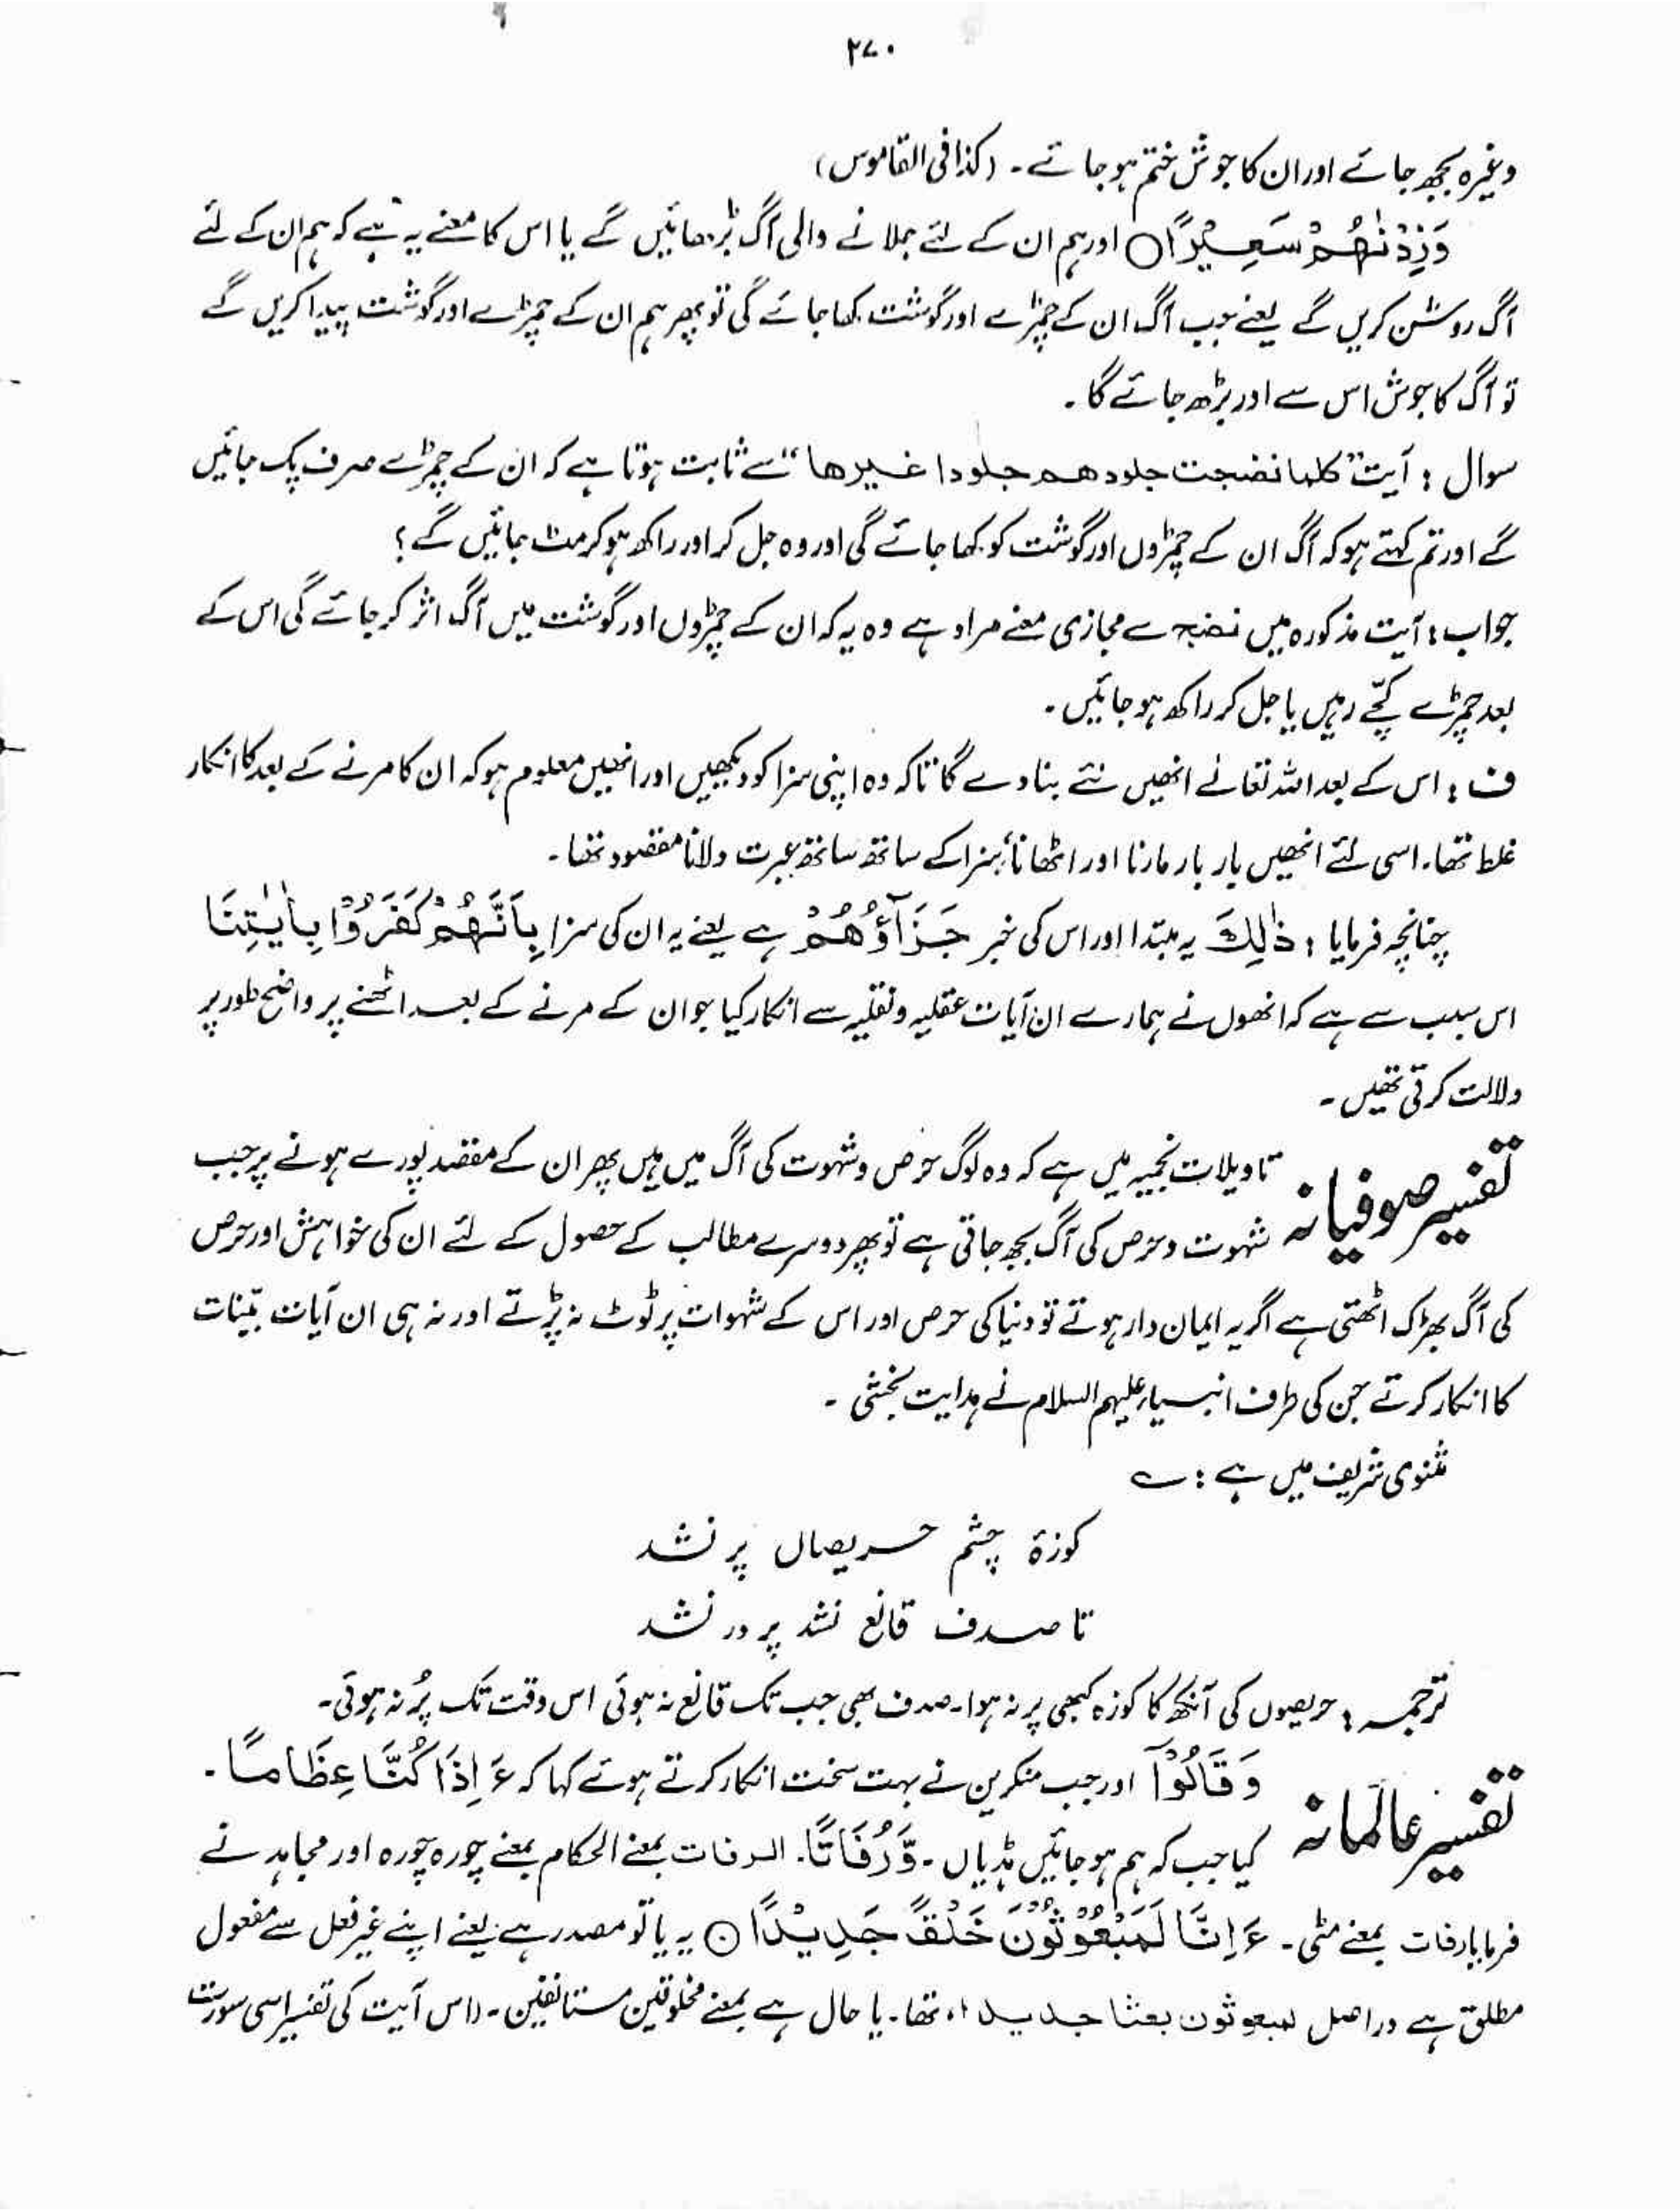 ۲۷۰
وغیرہ بجھ جائے اور ان کا جوش ختم ہو جائے۔ (کذا فی القاموس)
وَزِدْنٰھُمْ سَعِیْرًا ○ اور ہم ان کے لئے جلانے والی آگ بڑھائیں گے یا اس کا معنے یہ ہے کہ ہم ان کے لئے
آگ روشن کریں گے یعنے جب آگ ان کے چمڑے اور گوشت کھا جائے گی تو پھر ہم ان کے چمڑے اور گوشت پیدا کریں گے
تو آگ کا جوش اس سے اور بڑھ جائے گا۔
سوال : آیت "کلما نضجت جلودھم جلودا غیرھا" سے ثابت ہوتا ہے کہ ان کے چمڑے صرف پک جائیں
گے اور تم کہتے ہو کہ آگ ان کے چمڑوں اور گوشت کو کھا جائے گی اور وہ جل کر اور راکھ ہو کر مٹ جائیں گے؟
جواب : آیت مذکورہ میں نضج سے مجازی معنے مراد ہے وہ یہ کہ ان کے چمڑوں اور گوشت میں آگ اثر کر جائے گی اس کے
بعد چمڑے کچّے رہیں یا جل کر راکھ ہو جائیں۔
ف : اس کے بعد اللہ تعالےٰ انھیں نئے بنا دے گا تاکہ وہ اپنی سزا کو دیکھیں اور انھیں معلوم ہو کہ ان کا مرنے کے بعد کا انکار
غلط تھا۔ اسی لئے انھیں بار بار مارنا اور اٹھانا سزا کے ساتھ ساتھ عبرت دلانا مقصود تھا۔
چنانچہ فرمایا : ذٰلِكَ یہ مبتدا اور اس کی خبر جَزَآؤُھُمْ ہے یعنے یہ ان کی سزا بِاَنَّھُمْ کَفَرُوْا بِاٰیٰتِنَا
اس سبب سے ہے کہ انھوں نے ہمارے ان آیات عقلیہ و نقلیہ سے انکار کیا جو ان کے مرنے کے بعد اٹھنے پر واضح طور پر
دلالت کرتی تھیں۔
تفسیر صوفیانہ تاویلات نجمیہ میں ہے کہ وہ لوگ حرص و شہوت کی آگ میں ہیں پھر ان کے مقصد پورے ہونے پر جب
شہوت و حرص کی آگ بجھ جاتی ہے تو پھر دوسرے مطالب کے حصول کے لئے ان کی خواہش اور حرص
کی آگ بھڑک اٹھتی ہے اگر یہ ایمان دار ہوتے تو دنیا کی حرص اور اس کے شہوات پر ٹوٹ نہ پڑتے اور نہ ہی ان آیات بیّنات
کا انکار کرتے جن کی طرف انبیاء علیہم السلام نے ہدایت بخشی۔
مثنوی شریف میں ہے : ؎
کوزۂ چشم حریصاں پر نشد
تا صدف قانع نشد پر در نشد
ترجمہ : حریصوں کی آنکھ کا کوزہ کبھی پر نہ ہوا۔ صدف بھی جب تک قانع نہ ہوئی اس وقت تک پُر نہ ہوئی۔
تفسیر عالمانہ وَقَالُوْٓا اور جب منکرین نے بہت سخت انکار کرتے ہوئے کہا کہ ءَاِذَا کُنَّا عِظَامًا۔
کیا جب کہ ہم ہو جائیں ہڈیاں۔ وَّرُفَاتًا۔ الرفات بمعنے الحکام بمعنے چورہ چورہ اور مجاہد نے
فرمایا رفات بمعنے مٹی۔ ءَاِنَّا لَمَبْعُوْثُوْنَ خَلْقًا جَدِیْدًا ○ یہ یا تو مصدر ہے یعنے اپنے غیر فعل سے مفعول
مطلق ہے دراصل لمبعوثون بعثا جدیدا، تھا۔ یا حال ہے بمعنے مخلوقین مستانفین۔ (اس آیت کی تفسیر اسی سورت